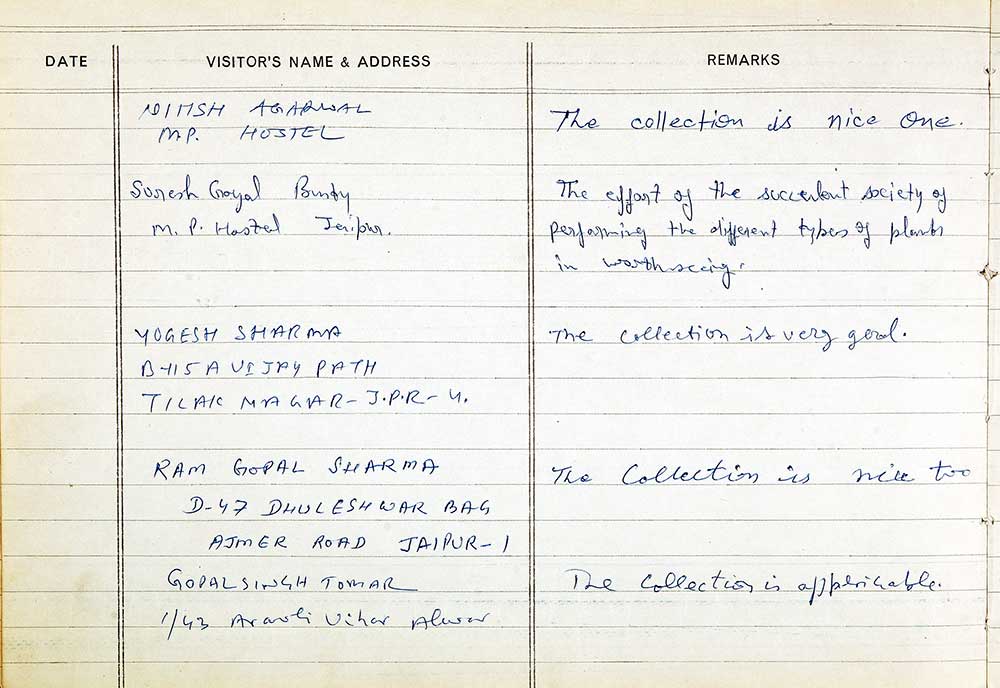 DATE VISITOR'S NAME & ADDRESS REMARKS
NITISH AGARWAL
M.P. HOSTEL
The collection is nice one.
Suresh Goyal
M. P. Hostel Jaipur.
The effort of the succulent society of
performing the different types of plants
in worth seeing.
YOGESH SHARMA
B-115 A VIJAY PATH
TILAK NAGAR - J.P.R - 4.
The collection is very good.
RAM GOPAL SHARMA
D-47 DHULESHWAR BAG
AJMER ROAD JAIPUR-1
The Collection is nice too
GOPAL SINGH TOMAR
1/43 Aravli Vihar Alwar
The Collection is